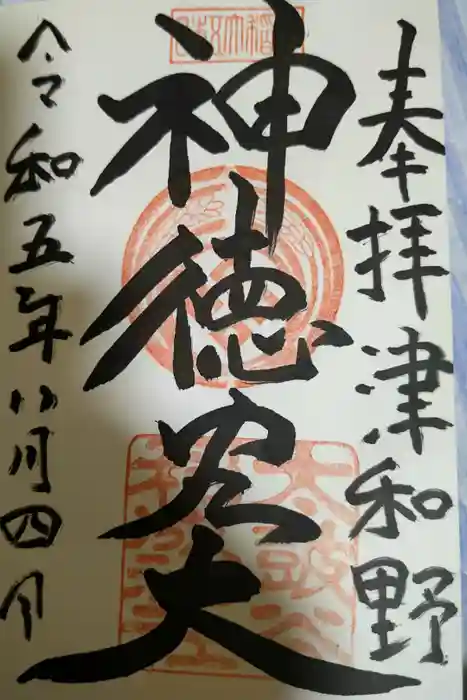 奉拝津和野
神徳宏大
令和五年八月四日
太皷谷